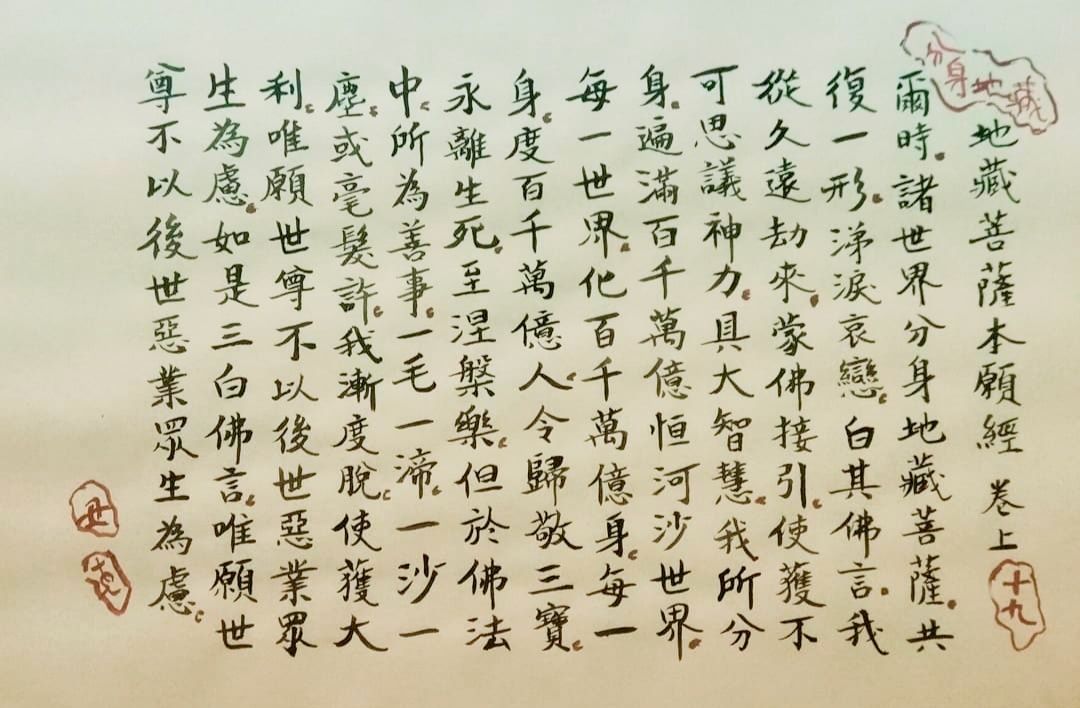 分身地藏
地藏菩薩本願經 卷上
十九
爾時。諸世界分身地藏菩薩。共
復一形。涕淚哀戀。白其佛言。我
從久遠劫來。蒙佛接引。使獲不
可思議神力。具大智慧。我所分
身。遍滿百千萬億恒河沙世界。
每一世界。化百千萬億身。每一
身。度百千萬億人。令歸敬三寶。
永離生死。至涅槃樂。但於佛法
中。所為善事。一毛一渧。一沙一
塵。或毫髮許。我漸度脫。使獲大
利。唯願世尊不以後世惡業眾
生為慮。如是三白佛言。唯願世
尊不以後世惡業眾生為慮。